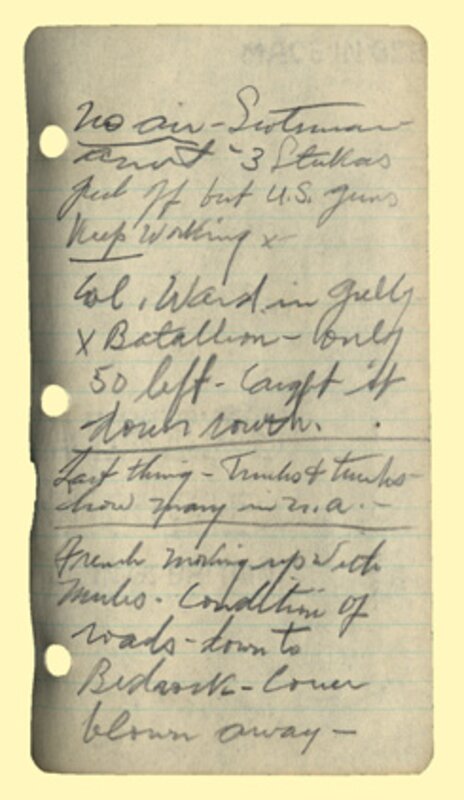 No air - Scotsman
"3 Stukas
peel off but U.S. guns
Keep working x-
Col. Ward in gully
x Batallion - only
50 left - Caught it
down south.
Last thing - Trucks & trucks
how many in N.A. -
French moving up with
Mules - Condition of
roads - down to
Bedrock - Cover
blown away -